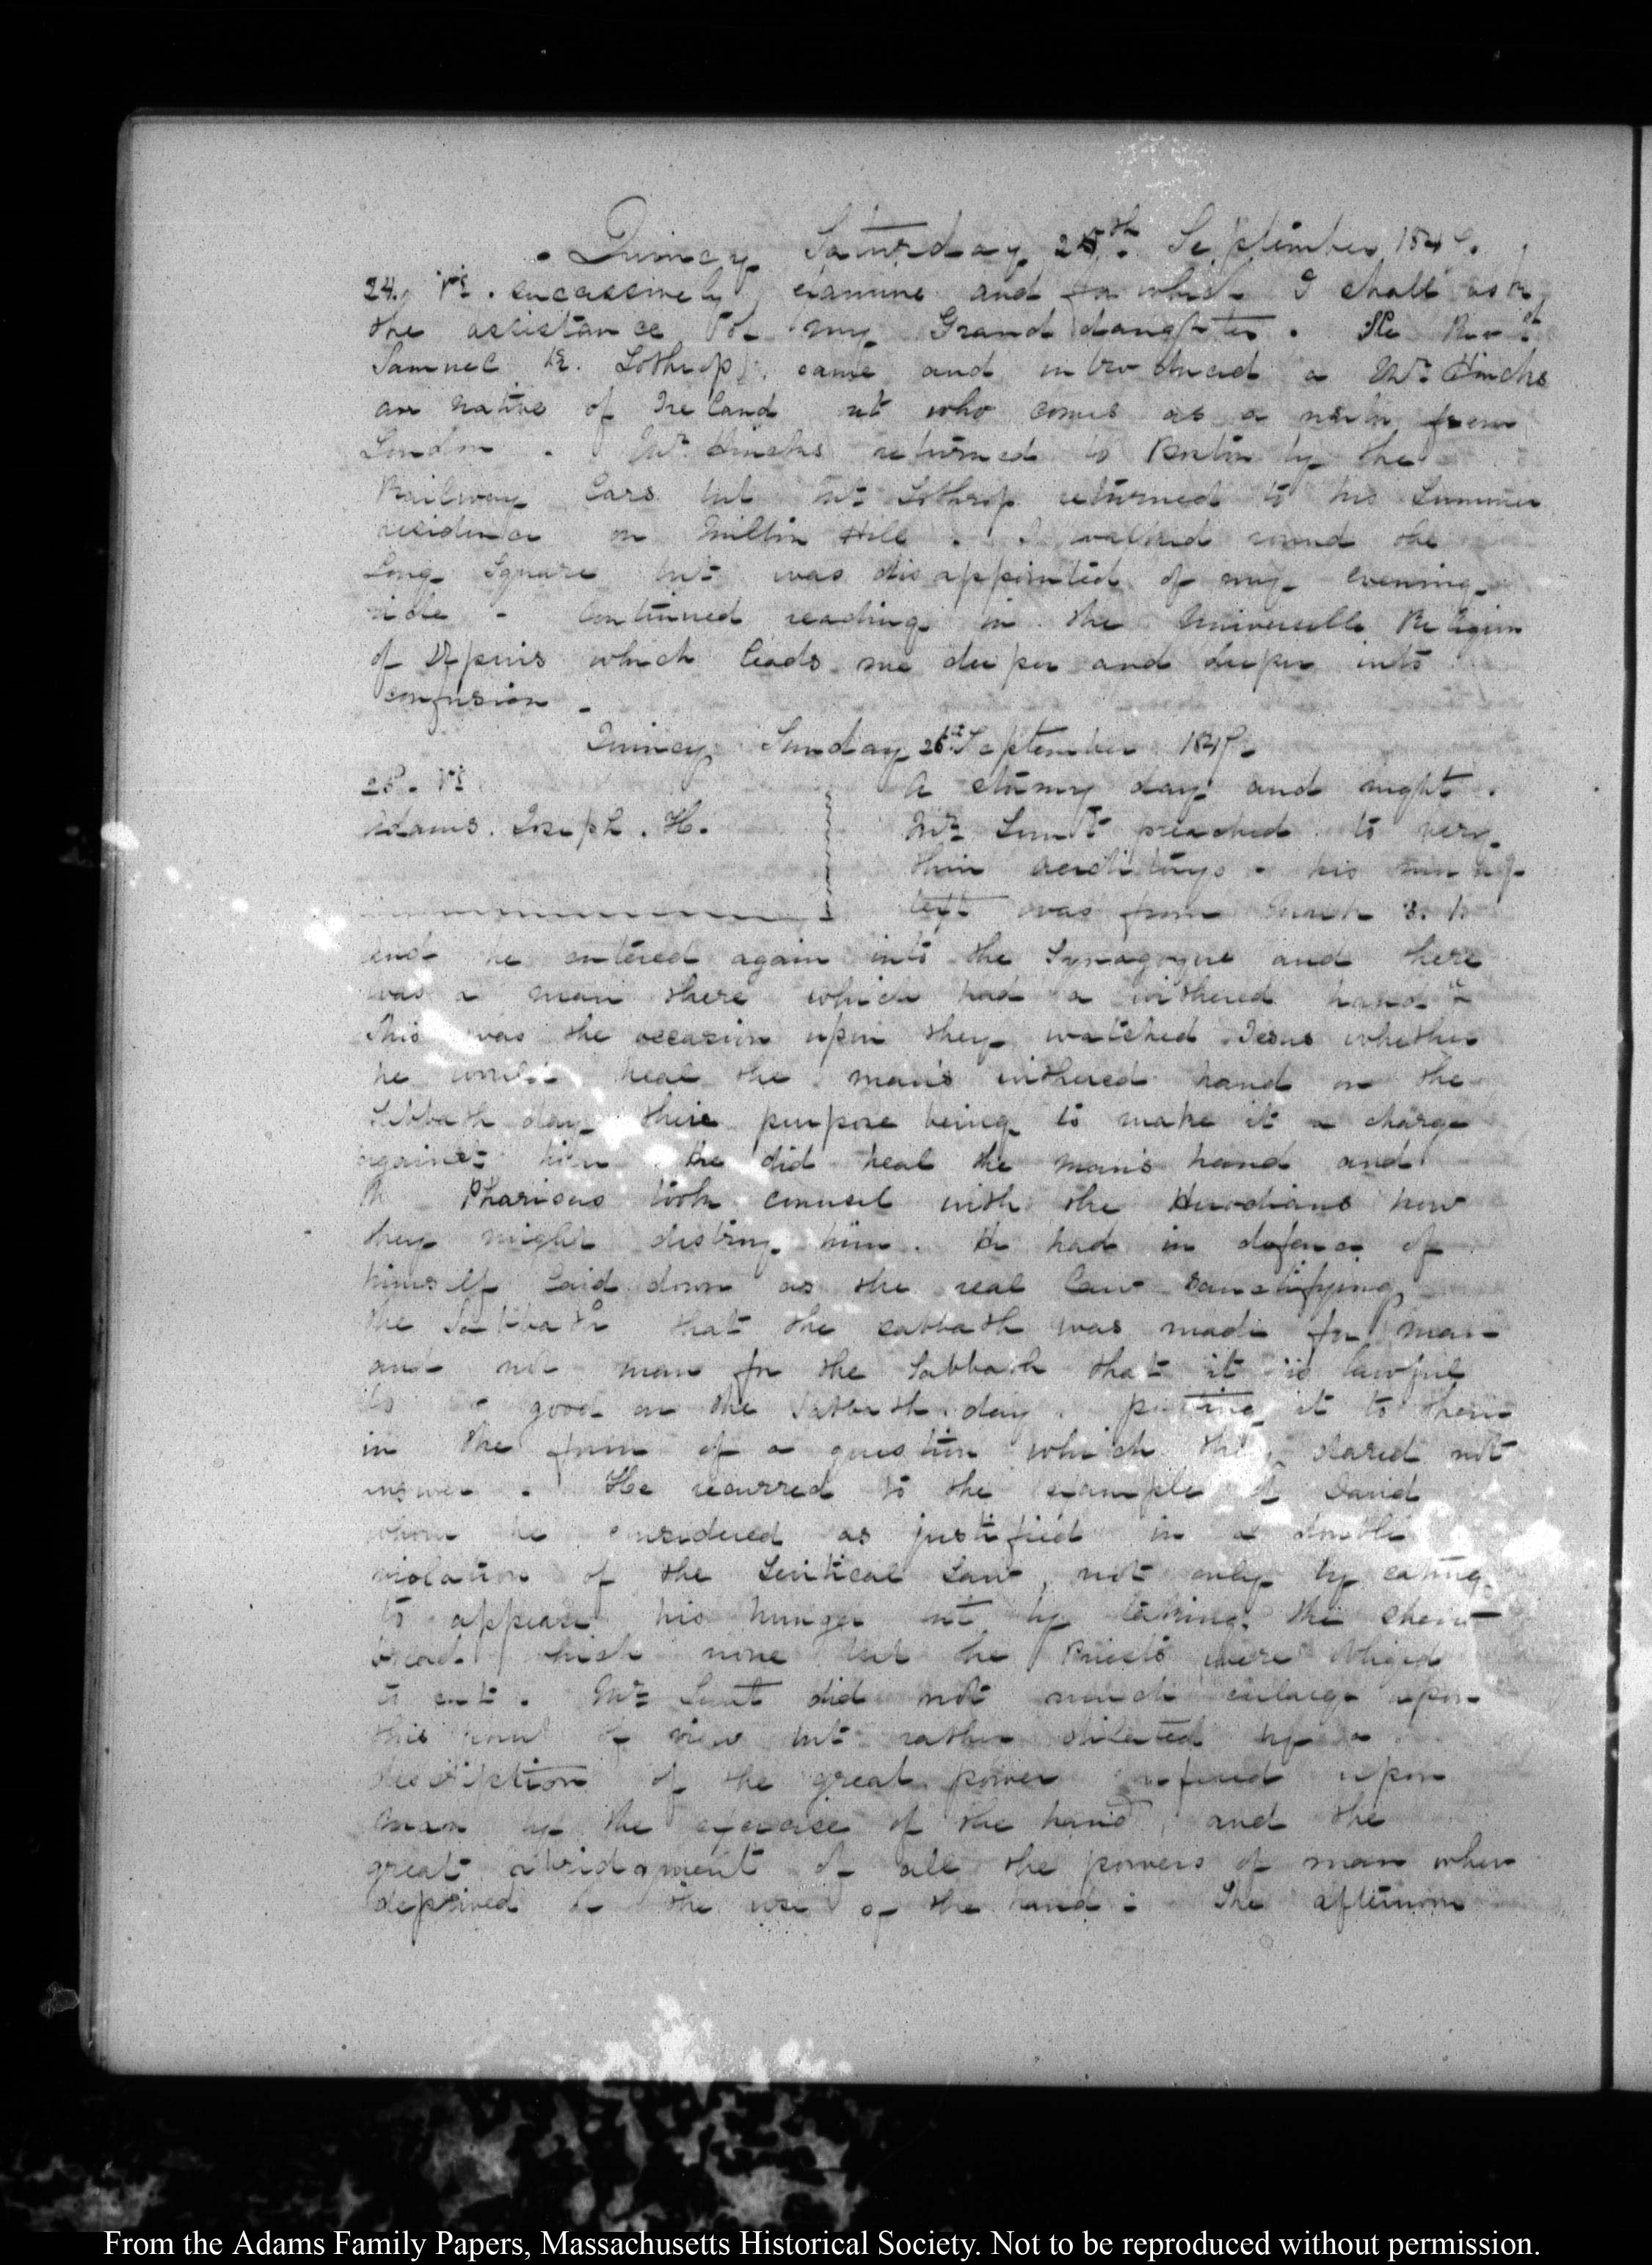 Quincy Saturday 25th. September 184
24. VI. successively examine and for which I shall ask
the assistance of my Grand daughter. The Revd.
Samuel K. Lothrop, came and introduced a Mr. Hincks
a native of Ireland but who comes as a from
London. Mr. Hincks returned to Boston by the
Railway Cars but Mr. Lothrop returned to his Summer
residence on Milton Hill. I walked round the
Long Square but was disappointed of my evening
ride - Continued reading in the Universelle Religion
of Dupuis which leads me deeper and deeper into
confusion.
Quincy Sunday 26 September 184
VI. A stormy day and night.
Adams. Joseph. H. Mr. Lunt preached to very
thin auditorys - his
text was from Mark 3. 1.
and he entered again into the Synagogue and there
was a man there which had a withered hand
This was the occasion upon they watched Jesus whether
he would heal the man's withered hand on the
Sabbath day their purpose being to make it a charge
against him. He did heal the man's hand and
the Pharisees took counsel with the Herodians how
they might destroy him. He had in defence of
himself laid down as the real law sanctifying
the Sabbath that the sabbath was made for man
and not man for the Sabbath that it is lawful
to good on the Sabbath day. putting it to them
in the form of a question which they dared not
answer. He recurred to the example of David
whom he considered as justified in a double
violation of the Levitical Law, not only by eating
to appease his hunger but by taking the shew-
bread which none but the Priests were
to eat. Mr. Lunt did not much enlarge upon
this point of view but rather dilated by a
description of the great power conferred upon
man by the exercise of the hand, and the
great abridgment of all the powers of man when
deprived of the use of the hand: The afternoon
From the Adams Family Papers, Massachusetts Historical Society. Not to be reproduced without permission.